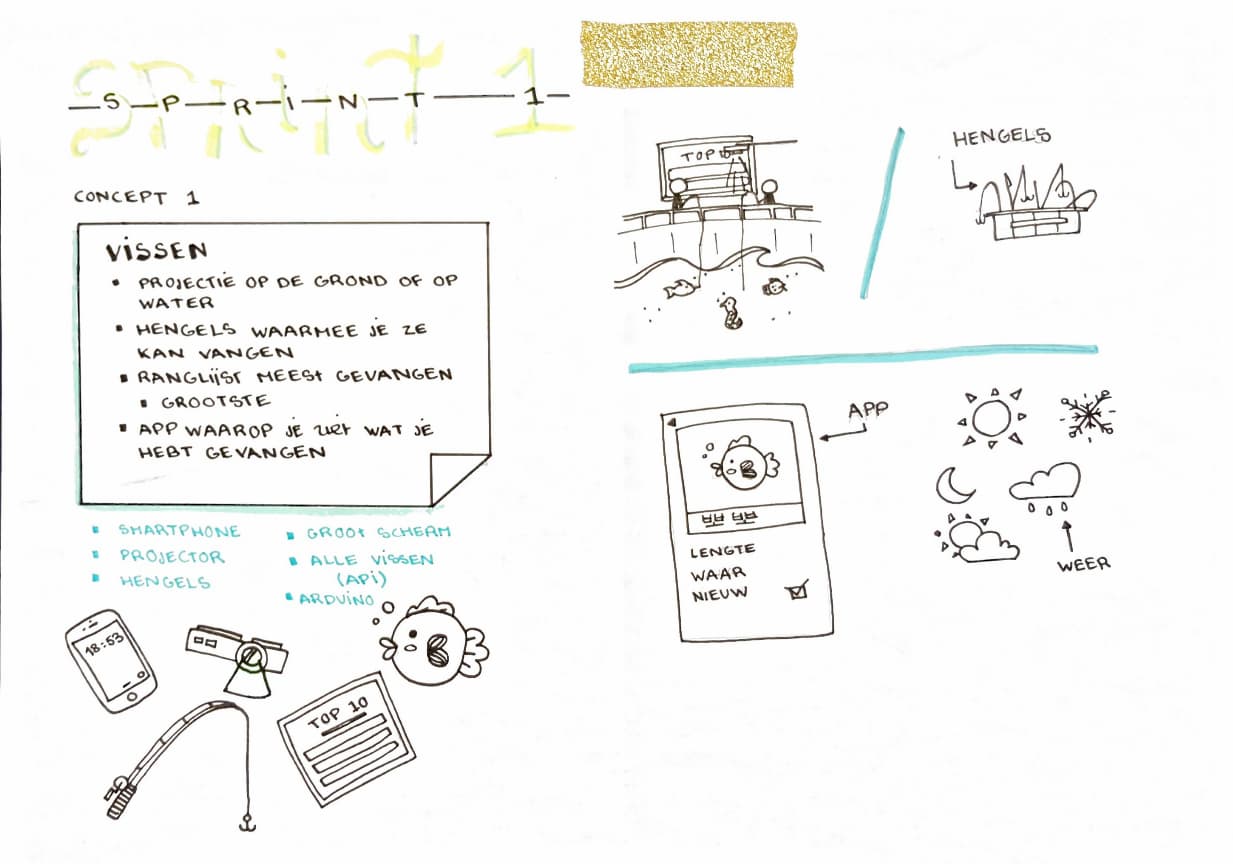 SPRiNT 1
CONCEPT 1
ViSSEN
PROJECTiE OP DE GROND OF OP
WATER
HENGELS WAARMEE JE ZE
KAN VANGEN
RANGLijST MEESt GEVANGEN
GROOTSTE
APP WAAROP JE ZIEt WAT JE
HEBT GEVANGEN
SMARTPHONE
PROJECTOR
HENGELS
GROOt SCHERM
ALLE ViSSEN
(APi)
ARDUiNO
18:53
TOP 10
TOP
HENGELS
APP
뽀 뽀
LENGTE
WAAR
NIEUW
WEER